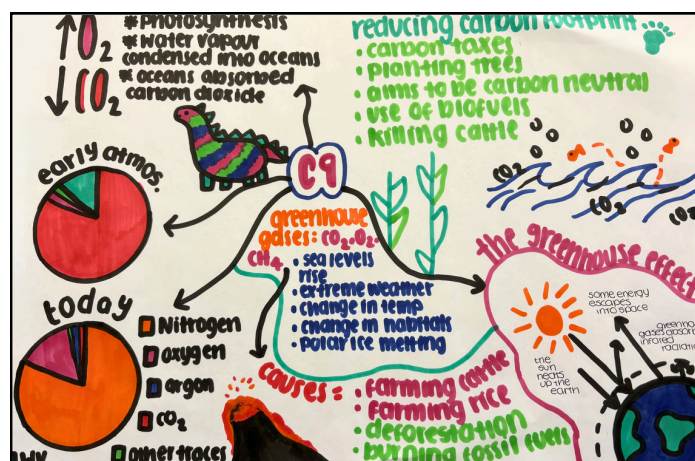 ↑O₂
* photosynthesis
* water vapour
condensed into oceans
↓CO₂
* oceans absorbed
carbon dioxide
reducing carbon footprint
• carbon taxes
• planting trees
• aims to be carbon neutral
• use of biofuels
• killing cattle
early atmos.
C9
greenhouse
gases: CO₂, O₂,
CH₄
• sea levels
rise
• extreme weather
• change in temp
• change in habitats
• polar ice melting
CO₂
CO₂
CO₂
the greenhouse effect
some energy
escapes
into space
greenho
gases absorb
infared
radiation
the
sun
heats
up the
earth
today
Nitrogen
oxygen
argon
CO₂
other traces
causes =
• farming cattle
• farming rice
• deforestation
• burning fossil fuels